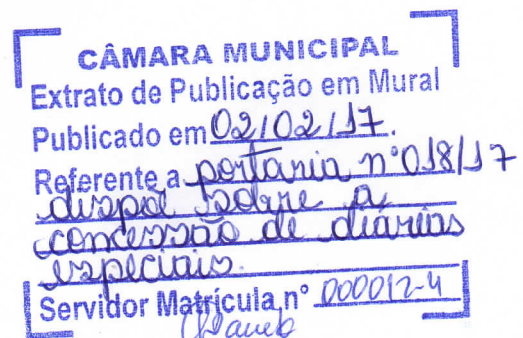 CÂMARA MUNICIPAL
Extrato de Publicação em Mural
Publicado em 02/02/17.
Referente a portaria nº 018/17
dispoe sobre a
concessão de diárias
especiais.
Servidor Matrícula nº 000012-4